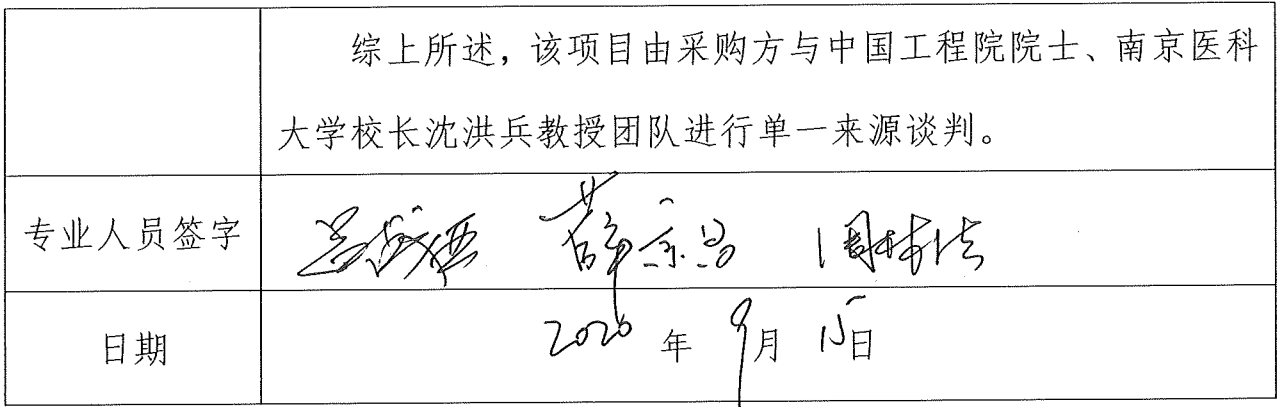 综上所述，该项目由采购方与中国工程院院士、南京医科
大学校长沈洪兵教授团队进行单一来源谈判。
专业人员签字
日期 2020 年 9月 15日